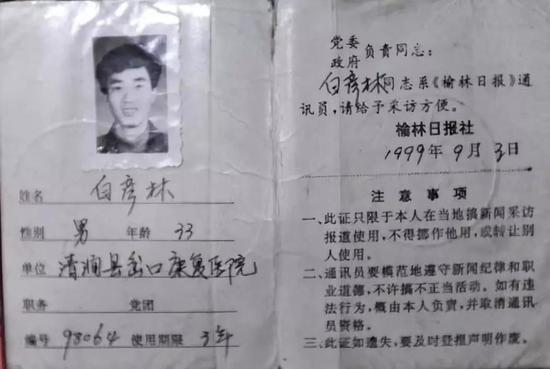 姓名 白彦林
性别 男 年龄 33
单位 清涧县岔口康复医院
职务 党团
编号 98064 使用期限 3年
党委
政府 负责同志:
白彦林同志系《榆林日报》通
讯员,请给予采访方便。
榆林日报社
1999年9月3日
注意事项
一、此证只限于本人在当地搞新闻采访
报道使用,不得挪作他用,或转让别
人使用。
二、通讯员要模范地遵守新闻纪律和职
业道德,不许搞不正当活动。如有违
法行为,概由本人负责,并取消通讯
员资格。
三、此证如遗失,要及时登报声明作废。